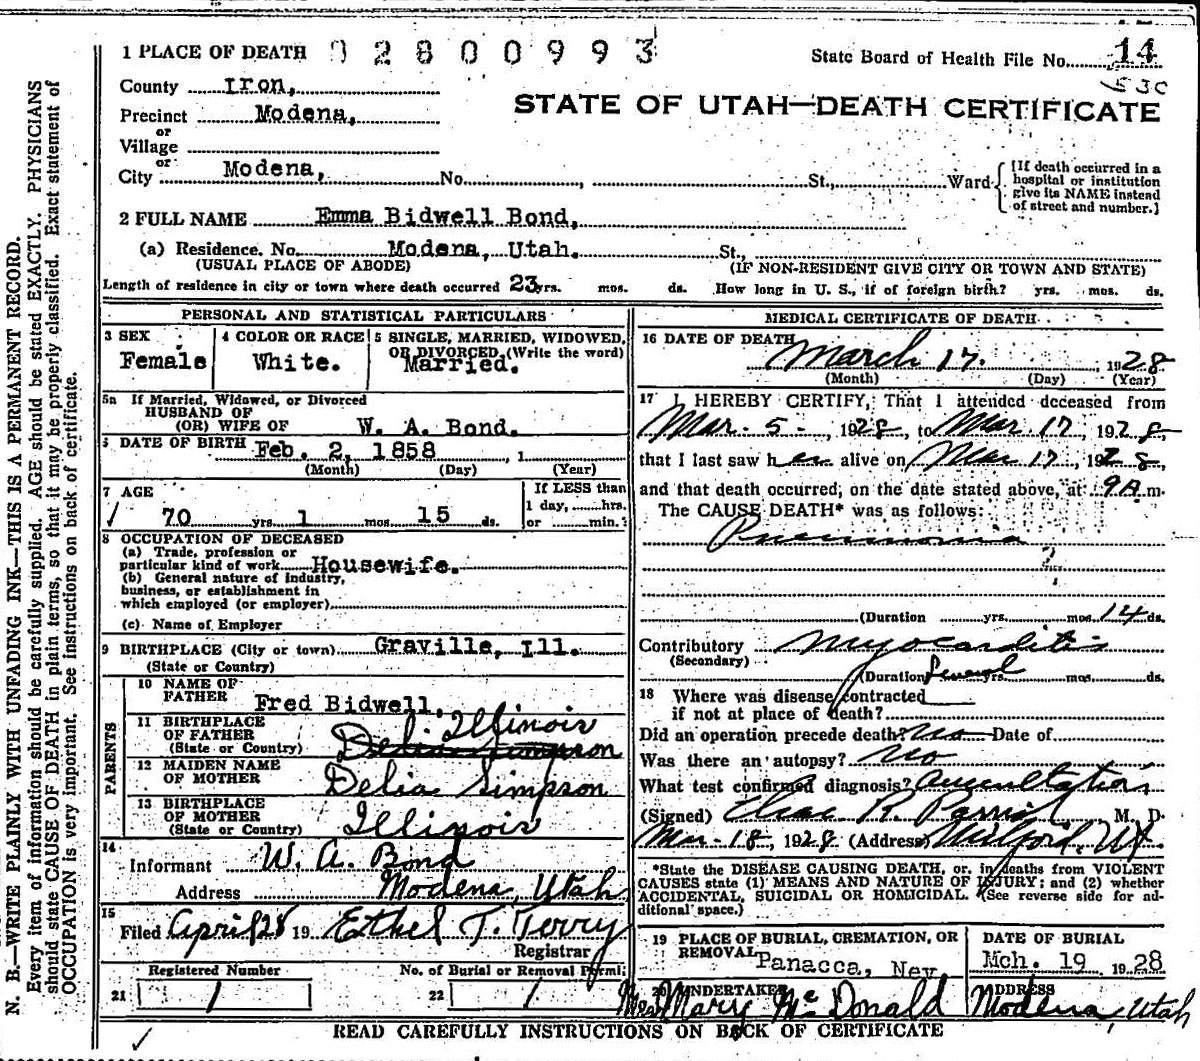 1 PLACE OF DEATH 02800993
State Board of Health File No. 14
530
County Iron,
STATE OF UTAH—DEATH CERTIFICATE
Precinct Modena,
or
Village
or
City Modena, No. , St., Ward
[If death occurred in a hospital or institution give its NAME instead of street and number.]
2 FULL NAME Emma Bidwell Bond,
(a) Residence. No. Modena, Utah. St.,
(USUAL PLACE OF ABODE) (IF NON-RESIDENT GIVE CITY OR TOWN AND STATE)
Length of residence in city or town where death occurred 23 yrs. mos. ds. How long in U. S., if of foreign birth? yrs. mos. ds.
PERSONAL AND STATISTICAL PARTICULARS
3 SEX 4 COLOR OR RACE 5 SINGLE, MARRIED, WIDOWED, OR DIVORCED (Write the word)
Female White. Married.
5a If Married, Widowed, or Divorced
HUSBAND OF
(OR) WIFE OF W. A. Bond.
DATE OF BIRTH Feb. 2, 1858 , 1
(Month) (Day) (Year)
7 AGE If LESS than
1 day, hrs.
70 yrs. 1 mos. 15 ds. or min.
8 OCCUPATION OF DECEASED
(a) Trade, profession or
particular kind of work Housewife.
(b) General nature of industry,
business, or establishment in
which employed (or employer)
(c) Name of Employer
9 BIRTHPLACE (City or town) Graville, Ill.
(State or Country)
PARENTS
10 NAME OF
FATHER Fred Bidwell,
11 BIRTHPLACE
OF FATHER Illinois
(State or Country) Delia Simpson
12 MAIDEN NAME
OF MOTHER Delia Simpson
13 BIRTHPLACE
OF MOTHER
(State or Country) Illinois
14
Informant W. A. Bond
Address Modena, Utah
15
Filed April 28 19 Ethel T. Terry
Registrar
Registered Number No. of Burial or Removal Permit
21 1 22 1
MEDICAL CERTIFICATE OF DEATH
16 DATE OF DEATH
March 17. , 1928
(Month) (Day) (Year)
17 I HEREBY CERTIFY, That I attended deceased from
Mar. 5 - , 1928, to Mar 17, 1928,
that I last saw her alive on Mar 17, 1928,
and that death occurred, on the date stated above, at 9A.m.
The CAUSE DEATH* was as follows:
Pneumonia
(Duration yrs. mos. 14 ds.
Contributory Myocarditis
(Secondary)
(Duration Several yrs. mos. ds.
18 Where was disease contracted
if not at place of death?
Did an operation precede death? No Date of
Was there an autopsy? No
What test confirmed diagnosis? Auscultation
(Signed) Chas R. Parrish M. D.
Mar - 18, 1928 (Address) Milford, Ut.
*State the DISEASE CAUSING DEATH, or, in deaths from VIOLENT
CAUSES state (1) MEANS AND NATURE OF INJURY; and (2) whether
ACCIDENTAL, SUICIDAL OR HOMICIDAL. (See reverse side for ad-
ditional space.)
19 PLACE OF BURIAL, CREMATION, OR
REMOVAL Panacca, Nev.
DATE OF BURIAL
Mch. 19 1928
20 UNDERTAKER
Mrs Mary McDonald
ADDRESS
Modena, Utah
READ CAREFULLY INSTRUCTIONS ON BACK OF CERTIFICATE
N. B.—WRITE PLAINLY WITH UNFADING INK—THIS IS A PERMANENT RECORD.
Every item of information should be carefully supplied. AGE should be stated EXACTLY. PHYSICIANS
should state CAUSE OF DEATH in plain terms, so that it may be properly classified. Exact statement of
OCCUPATION is very important. See instructions on back of certificate.